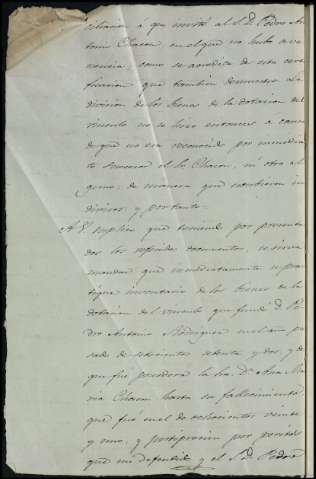 citacion a que invité al S. D. Pedro An-
tonio Chacon en el que no hubo avenencia
como se acredita de esta certi-
ficacion que tambien demuestra la
division de los bienes de la dotacion del
vinculo no se hizo entonces a causa
de que no era reconocido por inmediato
sucesor el Chacon, ni otro al-
guno; de manera que continuó in-
diviso; y por tanto
A V. suplico que teniendo por presenta-
dos los referidos documentos, se sirva
mandar que inmediatamente se prac-
tique inventario de los bienes de la
dotacion del vinculo que fundó D. Pe-
dro Antonio Rodriguez en el año pa-
sado de setecientos setenta y dos, y de
que fué poseedora la Sra. Da. Ana Ma-
ria Chacon hasta su fallecimiento
que fué en el de ochocientos veinte
y uno, y justiprecien por peritos
que mi defendido y el S. D. Pedro